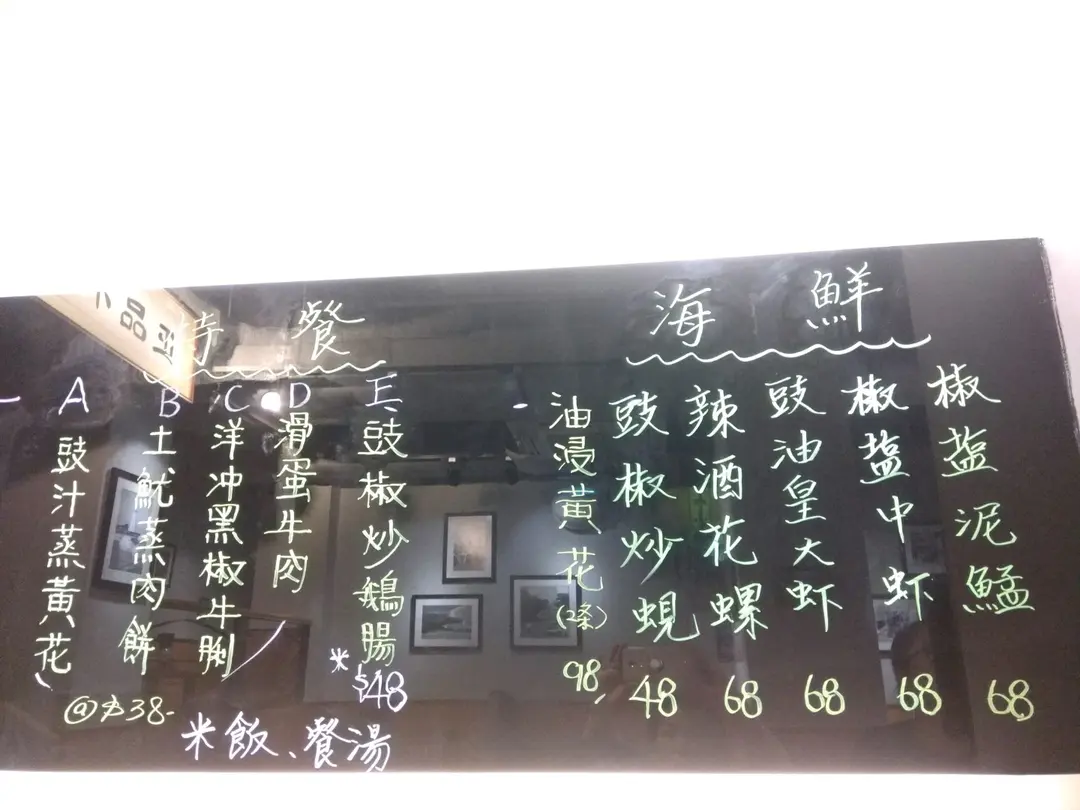 特餐
A 豉汁蒸黃花
B 土魷蒸肉餅
C 洋冲黑椒牛脷
D 滑蛋牛肉
@$38-
E 豉椒炒鵝腸
*$48
米飯、餐湯
海鮮
油浸黃花(2条) 98
豉椒炒蜆 48
辣酒花螺 68
豉油皇大虾 68
椒盐中虾 68
椒盐泥鯭 68